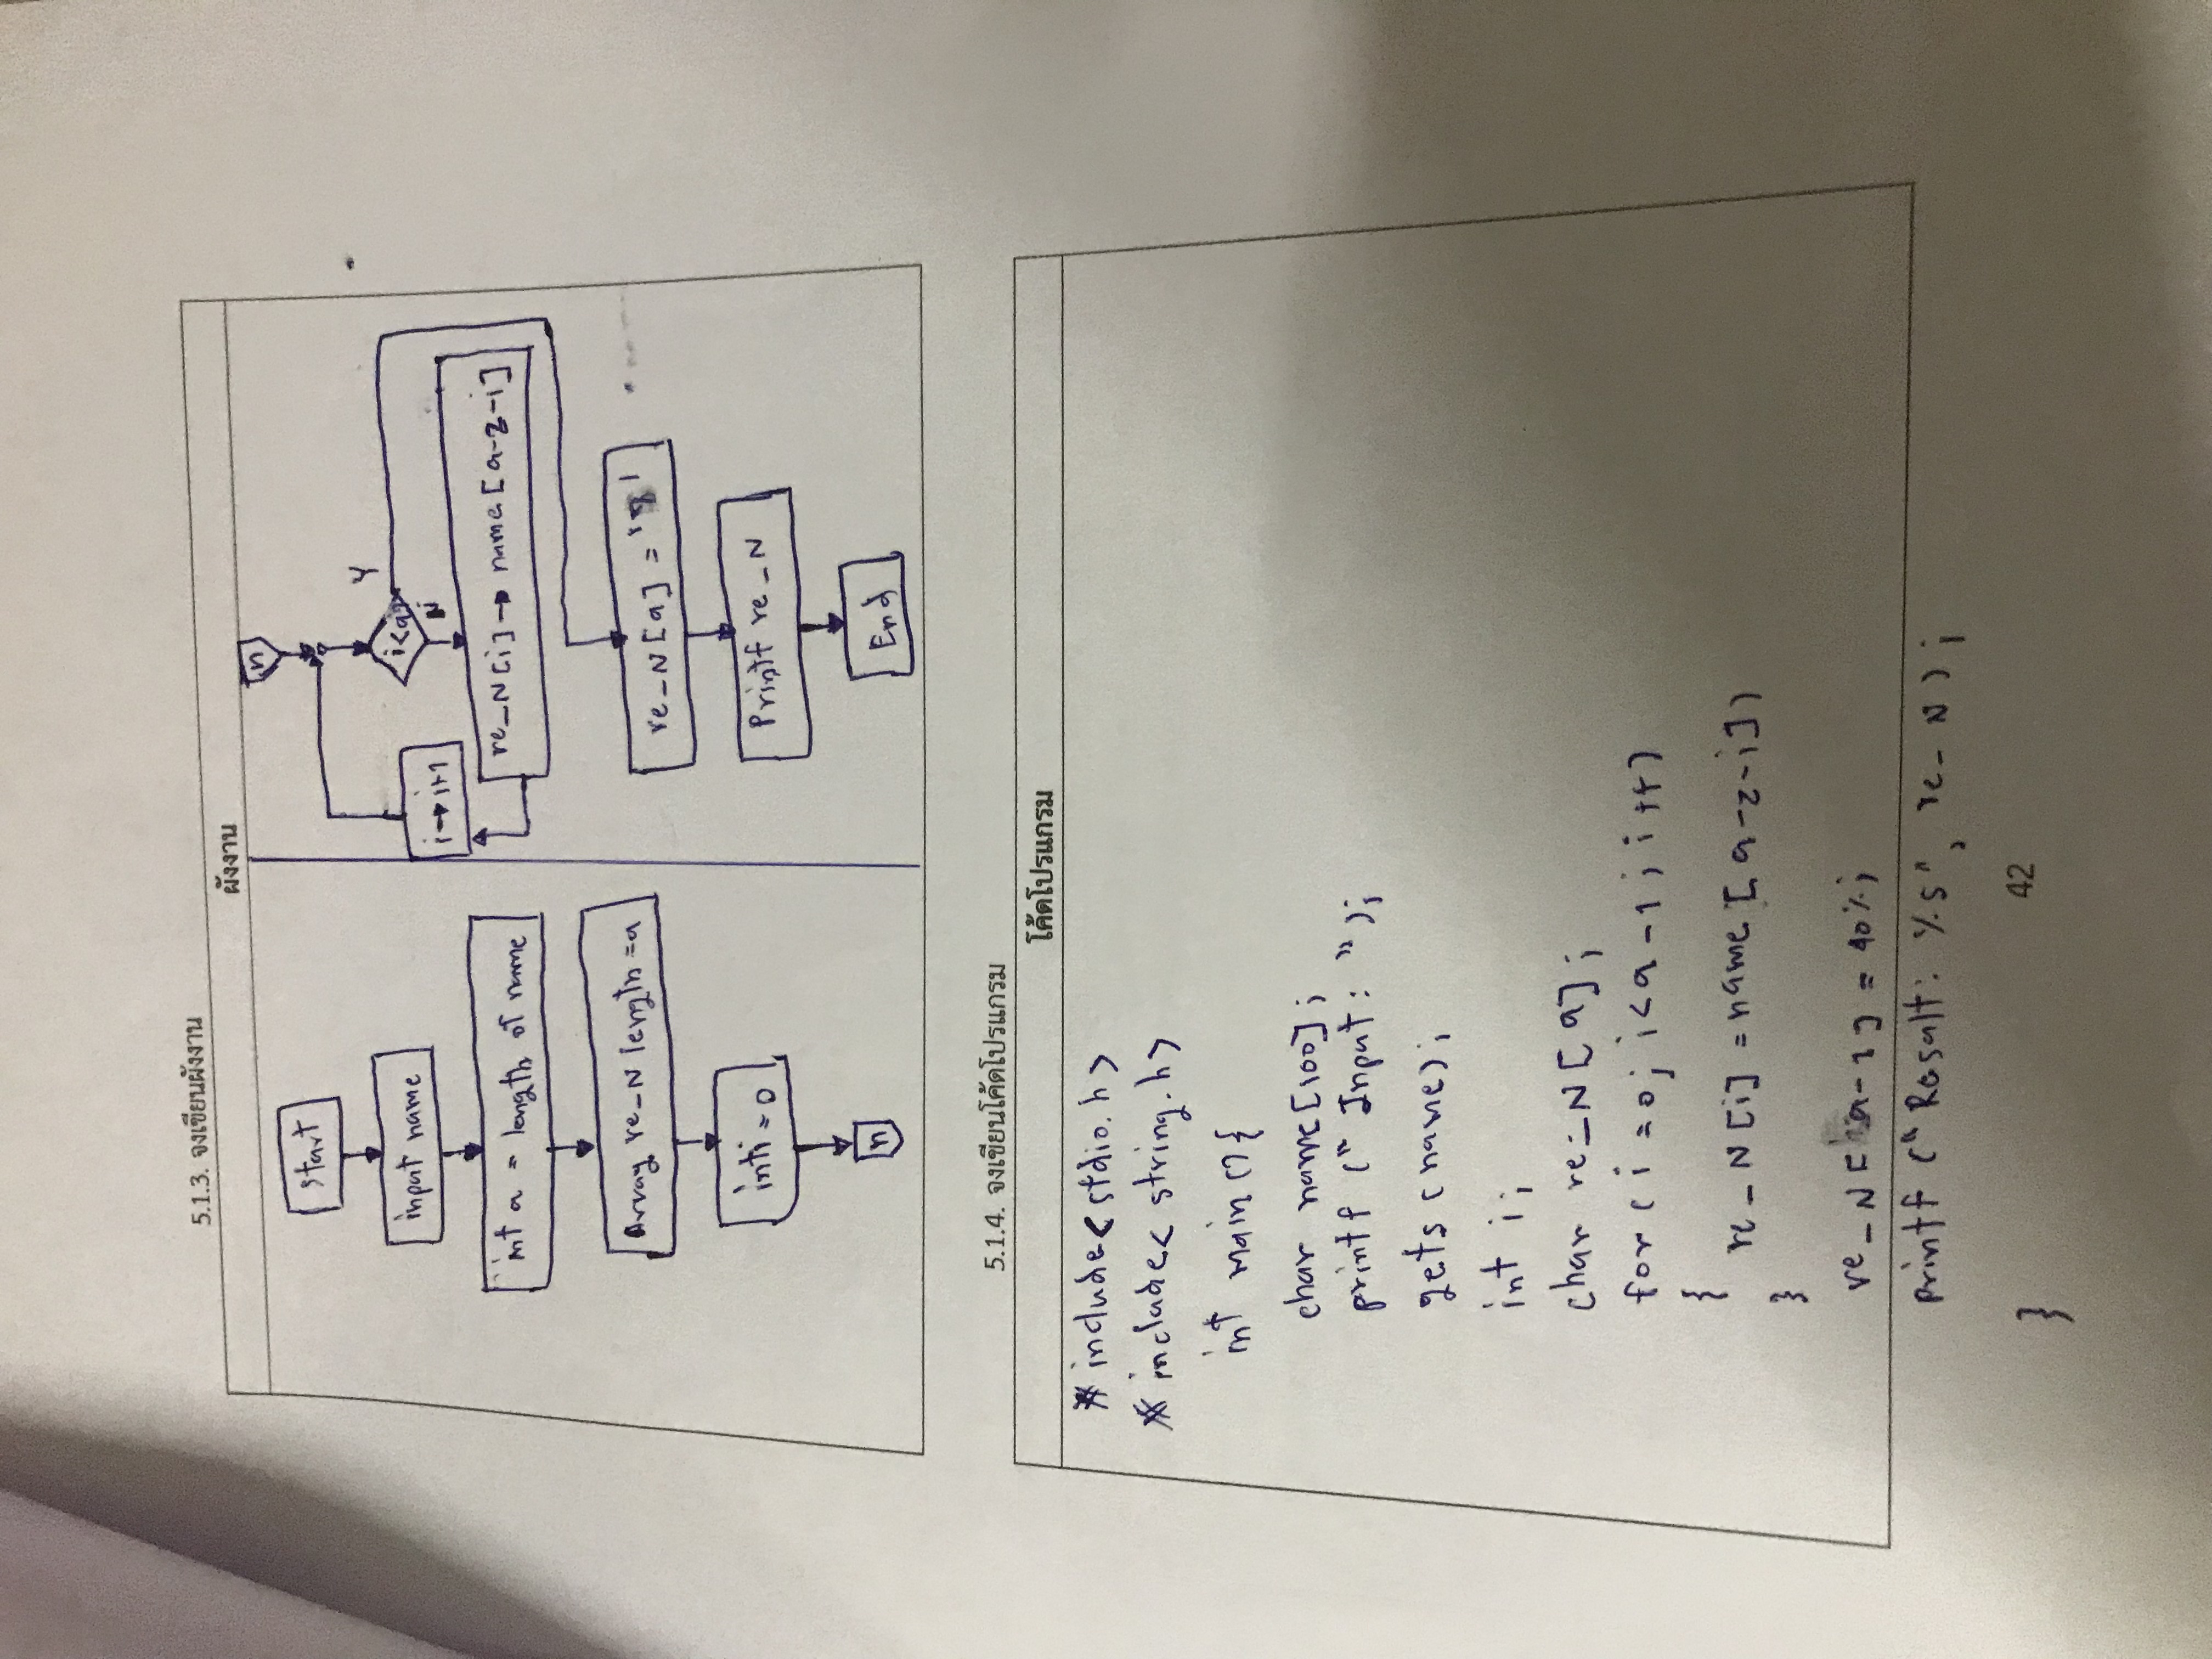 5.1.3. จงเขียนผังงาน
ผังงาน
start
input name
int a = length of name
Array re_N length = a
int i = 0
n
n
i<a
Y
N
i → i+1
re_N[i] → name[a-2-i]
re_N[a] = '
Printf re_N
End
5.1.4. จงเขียนโค้ดโปรแกรม
โค้ดโปรแกรม
# include< stdio.h >
# include< string.h >
int main(){
char name[100];
printf (" Input: ");
gets (name);
int i;
char re_N[a];
for ( i = 0; i<a-1; i++)
{
re_N[i] = name[a-2-i])
}
re_N[a-1] =
printf (" Result: %s", re_N);
42
}